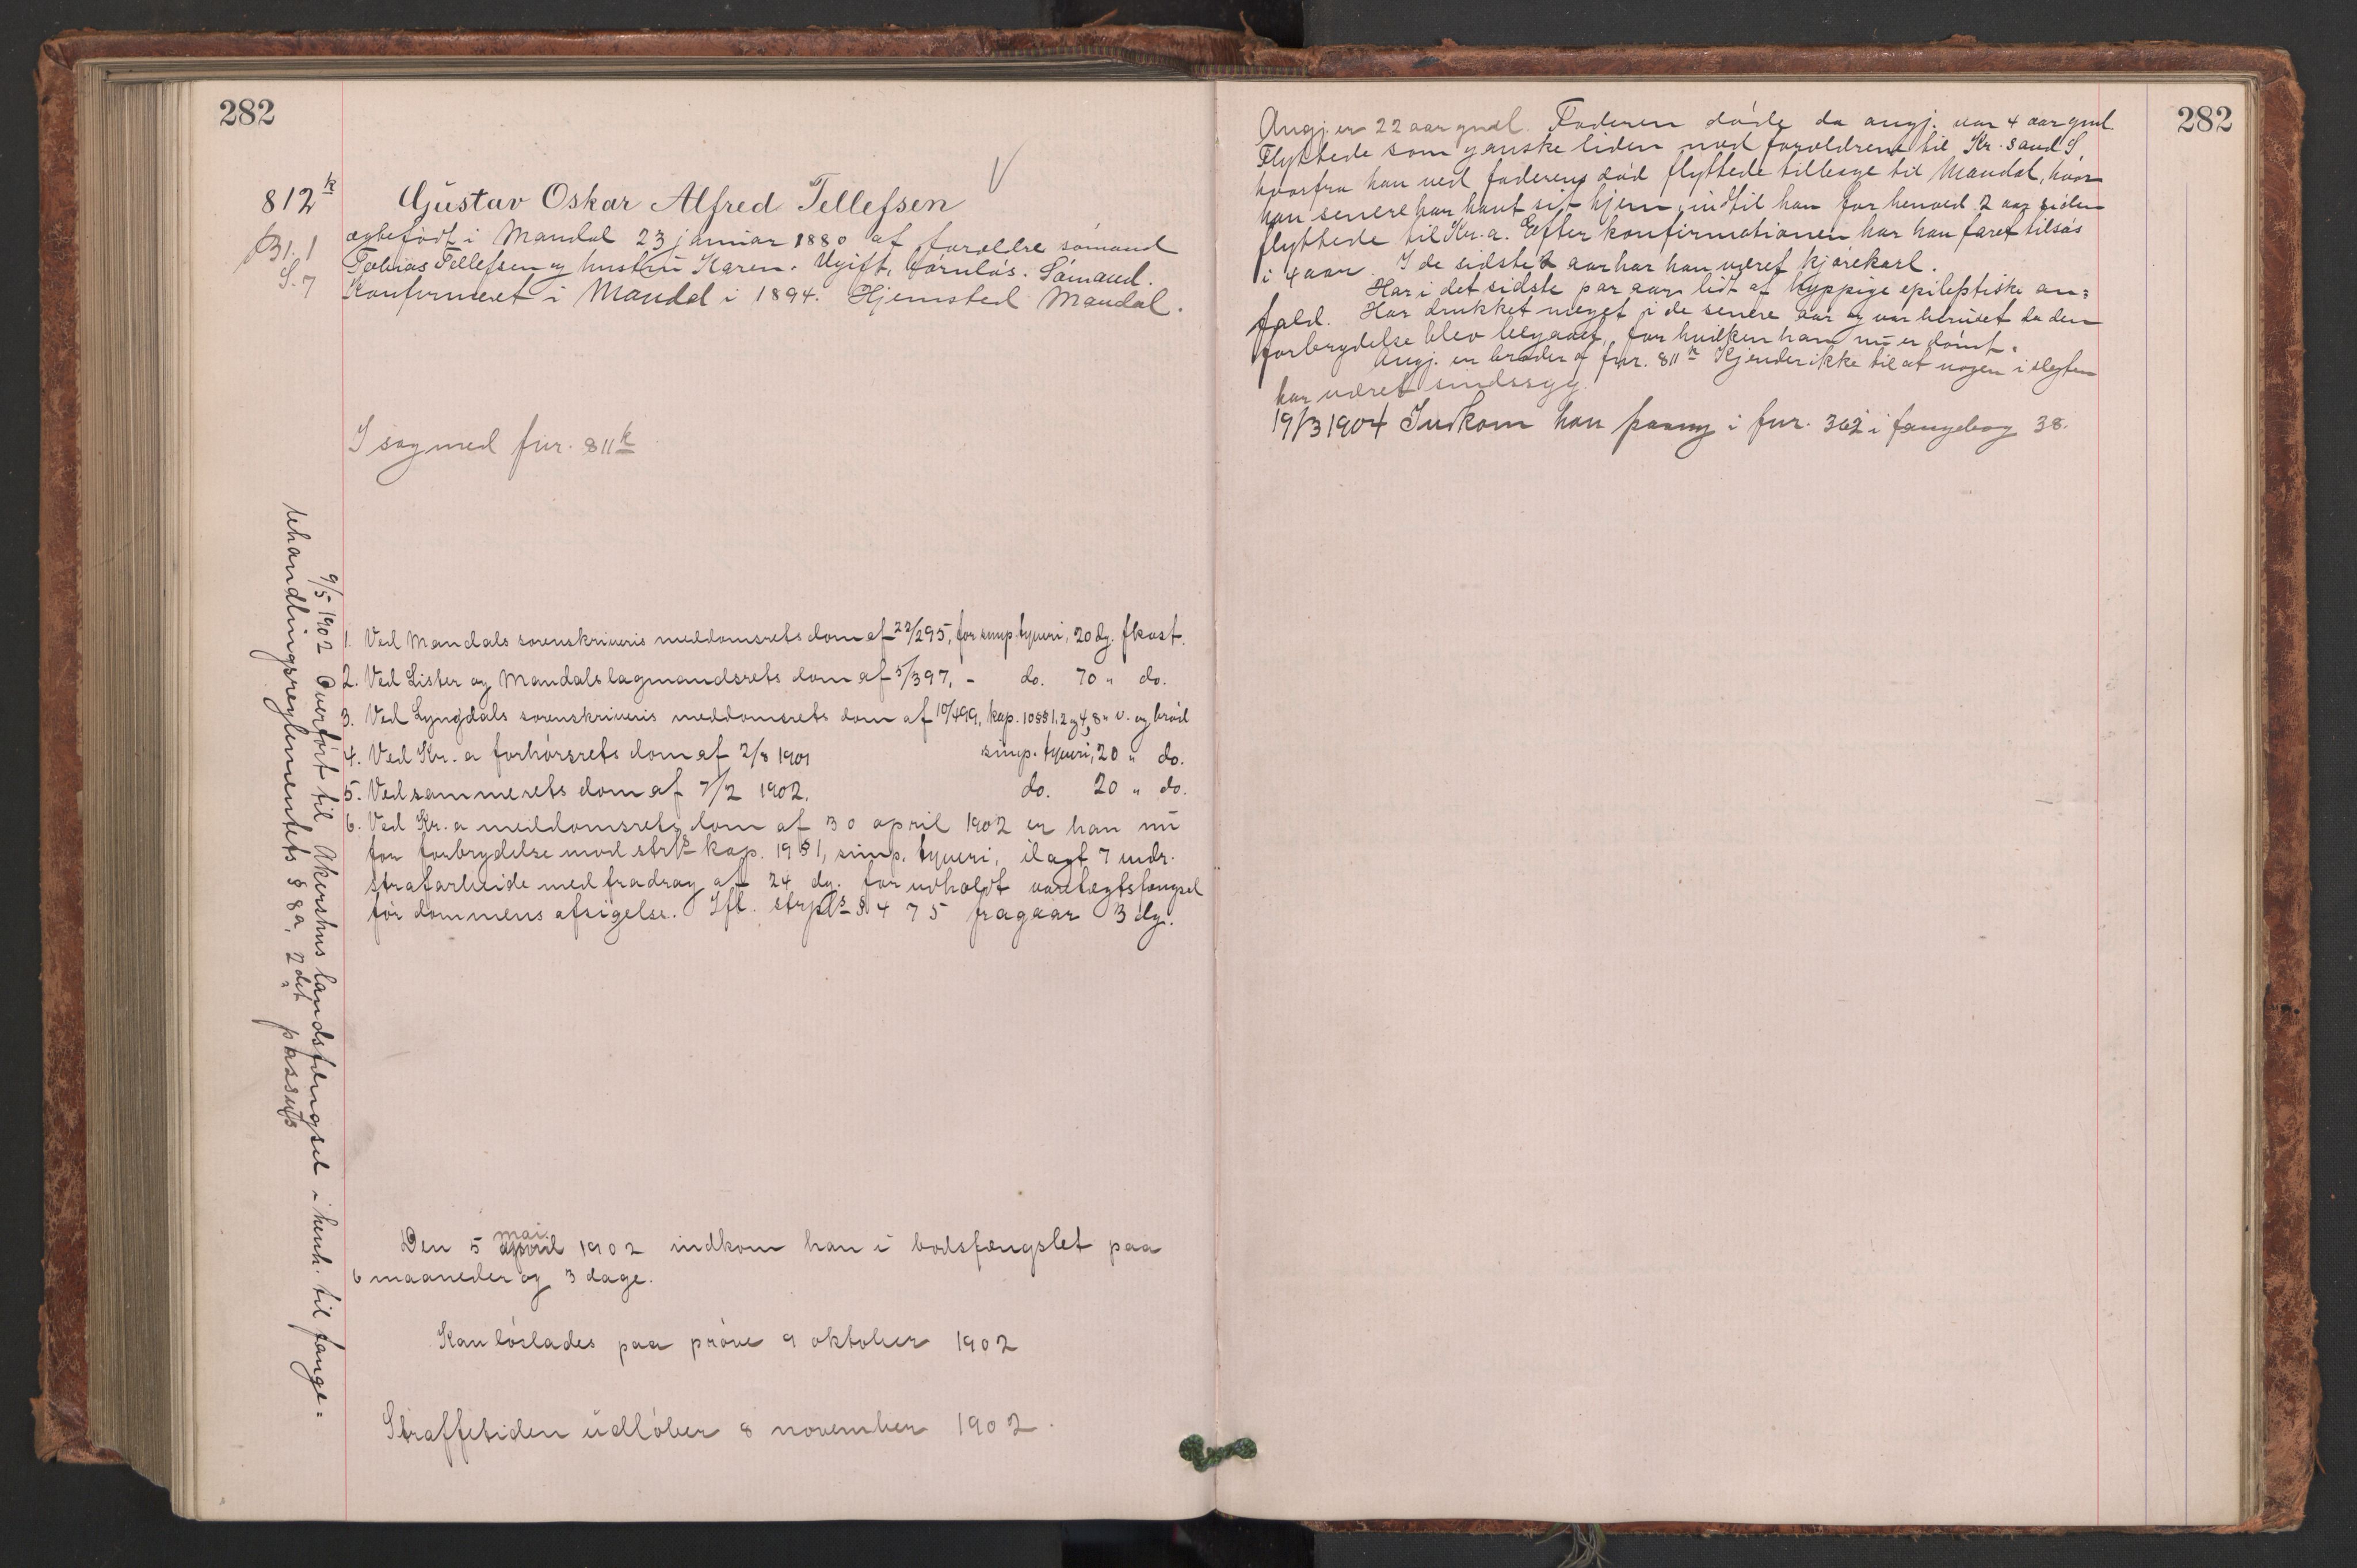 282
812k
B1. 1
S. 7
Gustav Oskar Alfred Tellefsen
ægtefödt i Mandal 23 januar 1880 af forældre sömand
Tobias Tellefsen og hustru Karen. Ugift, börnlös. Sömand.
Konfirmeret i Mandal i 1894. Hjemsted Mandal.
I sag med fnr. 811k
1. Ved Mandals sorenskriveris meddomsrets dom af 22/2 95, for simp. tyveri, 20 dg. fkost.
2. Ved Lister og Mandals lagmandsrets dom af 5/3 97, - do. 70 " do.
3. Ved Lyngdals sorenskriveris meddomsrets dom af 10/4 99, kap. 10 §§ 1, 2 og 4, 8 " v. og bröd
4. Ved Kr.a forhörsrets dom af 2/8 1901 simp. tyveri, 20 " do.
5. Ved sammerets dom af 7/2 1902. do. 20 " do.
6. Ved Kr.a meddomsrets dom af 30 april 1902 er han nu
for forbrydelse mod strls kap. 19 § 1, simp. tyveri, ilagt 7 mdr.
strafarbeide med fradrag af 24 dg. for udholdt varetægtsfængsel
för dommens afsigelse. Ifl. strpls § 475 fragaar 3 dg.
Den 5 april mai 1902 indkom han i bodsfængslet paa
6 maaneder og 3 dage.
Kan löslades paa pröve 9 oktober 1902
Straffetiden udlöber 8 november 1902.
9/5 1902 Overfört til Akershus landsfængsel i henh. til fange=
behandlingsreglementets § 8a, 2det passus
282
Angj. er 22 aar gml. Faderen döde da angj. var 4 aar gml.
Flyttede som ganske liden med forældrene til Kr.sand S
hvorfra han ved faderens död flyttede tilbage til Mandal, hvor
han senere har havt sit hjem, indtil han for henved 2 aar siden
flyttede til Kr.a. Efter konfirmationen har han faret tilsös
i 4 aar. I de sidste 2 aar har han været kjörekarl.
Har i det sidste par aar lidt af hyppige epileptiske an=
fald. Har drukket meget i de senere aar og var beruset da den
forbrydelse blev begaaet, for hvilken han nu er dömt.
Angj. er broder af fnr. 811k Kjender ikke til at nogen i slegten
har været sindssyg.
19/3 1904 Indkom han paany i fnr. 362 i fangebog 38.